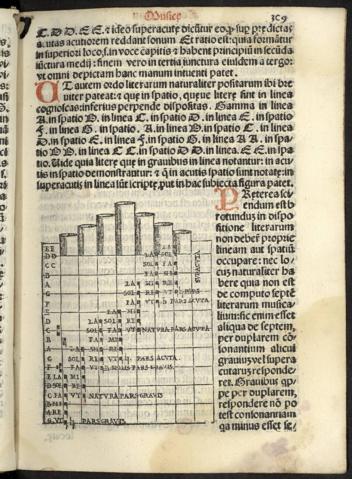 Musice
309
C. D D. E E. & ideo superacute dicũtur eo ꝙ sup̃ p̃dictas
acutas acutiorem reddant sonum Et ratio est: quia formãtur
in superiori loco. s. in voce capitis & habent principiũ in secũda
iũctura medij: finem vero in tertia iunctura eiusdem a tergo:
vt omni depictam hanc manum intuenti patet.
UT autem ordo literarum naturaliter positarum ibi bre
uiter pateat: & que in spatio, queue litere sint in linea
cognoscas: inferius perpende dispositas. Gamma in linea
A. in spatio B. in linea C. in spatio D. in linea E. in spatio
F. in linea G. in spatio. A. in linea B. in spatio C. in linea
D. in spatio E. in linea F. in spatio G. in linea A A. in spa-
tio B B. in linea C C. in spatio D D. in linea. E E. in spa
tio. Uide quia litere que in grauibus in linea notantur: in acu
tis in spatio demonstrãtur: & q̃ in acutis spatio sunt notate: in
superacutis in linea sic scripte, put in hac subiecta figura patet.
PReterea sci-
endum est: ꝙ
rotundus in dispo
sitione literarum
non debet proprie
lineam aut spatiũ
occupare: nec lo-
cus naturaliter ha
bere quia non est
de computo septẽ
literarum musica-
lium: sic enim esset
aliqua de septem,
per duplarem cõ-
sonantium alicui
grauium vel supera
cutarum responde-
ret. Grauibus qp̃-
pe per duplarem,
respondere nõ po
test consonantiam
qa minus esset se/
EE
DD LA SOL
CC SOL FA
LA MI
LA MI RE
SOL RE VT
FA VT
LA MI
LA SOL RE
SOL FA VT NATVRA PARS ACVTA
FA MI
LA MI RE
SOL RE VT PARS ACVTA
FA VT PARS GRAVIS
E LA MI
D SOL RE
C FA VT NATVRA PARS GRAVIS
B MI
A RE
G VT PARS GRAVIS